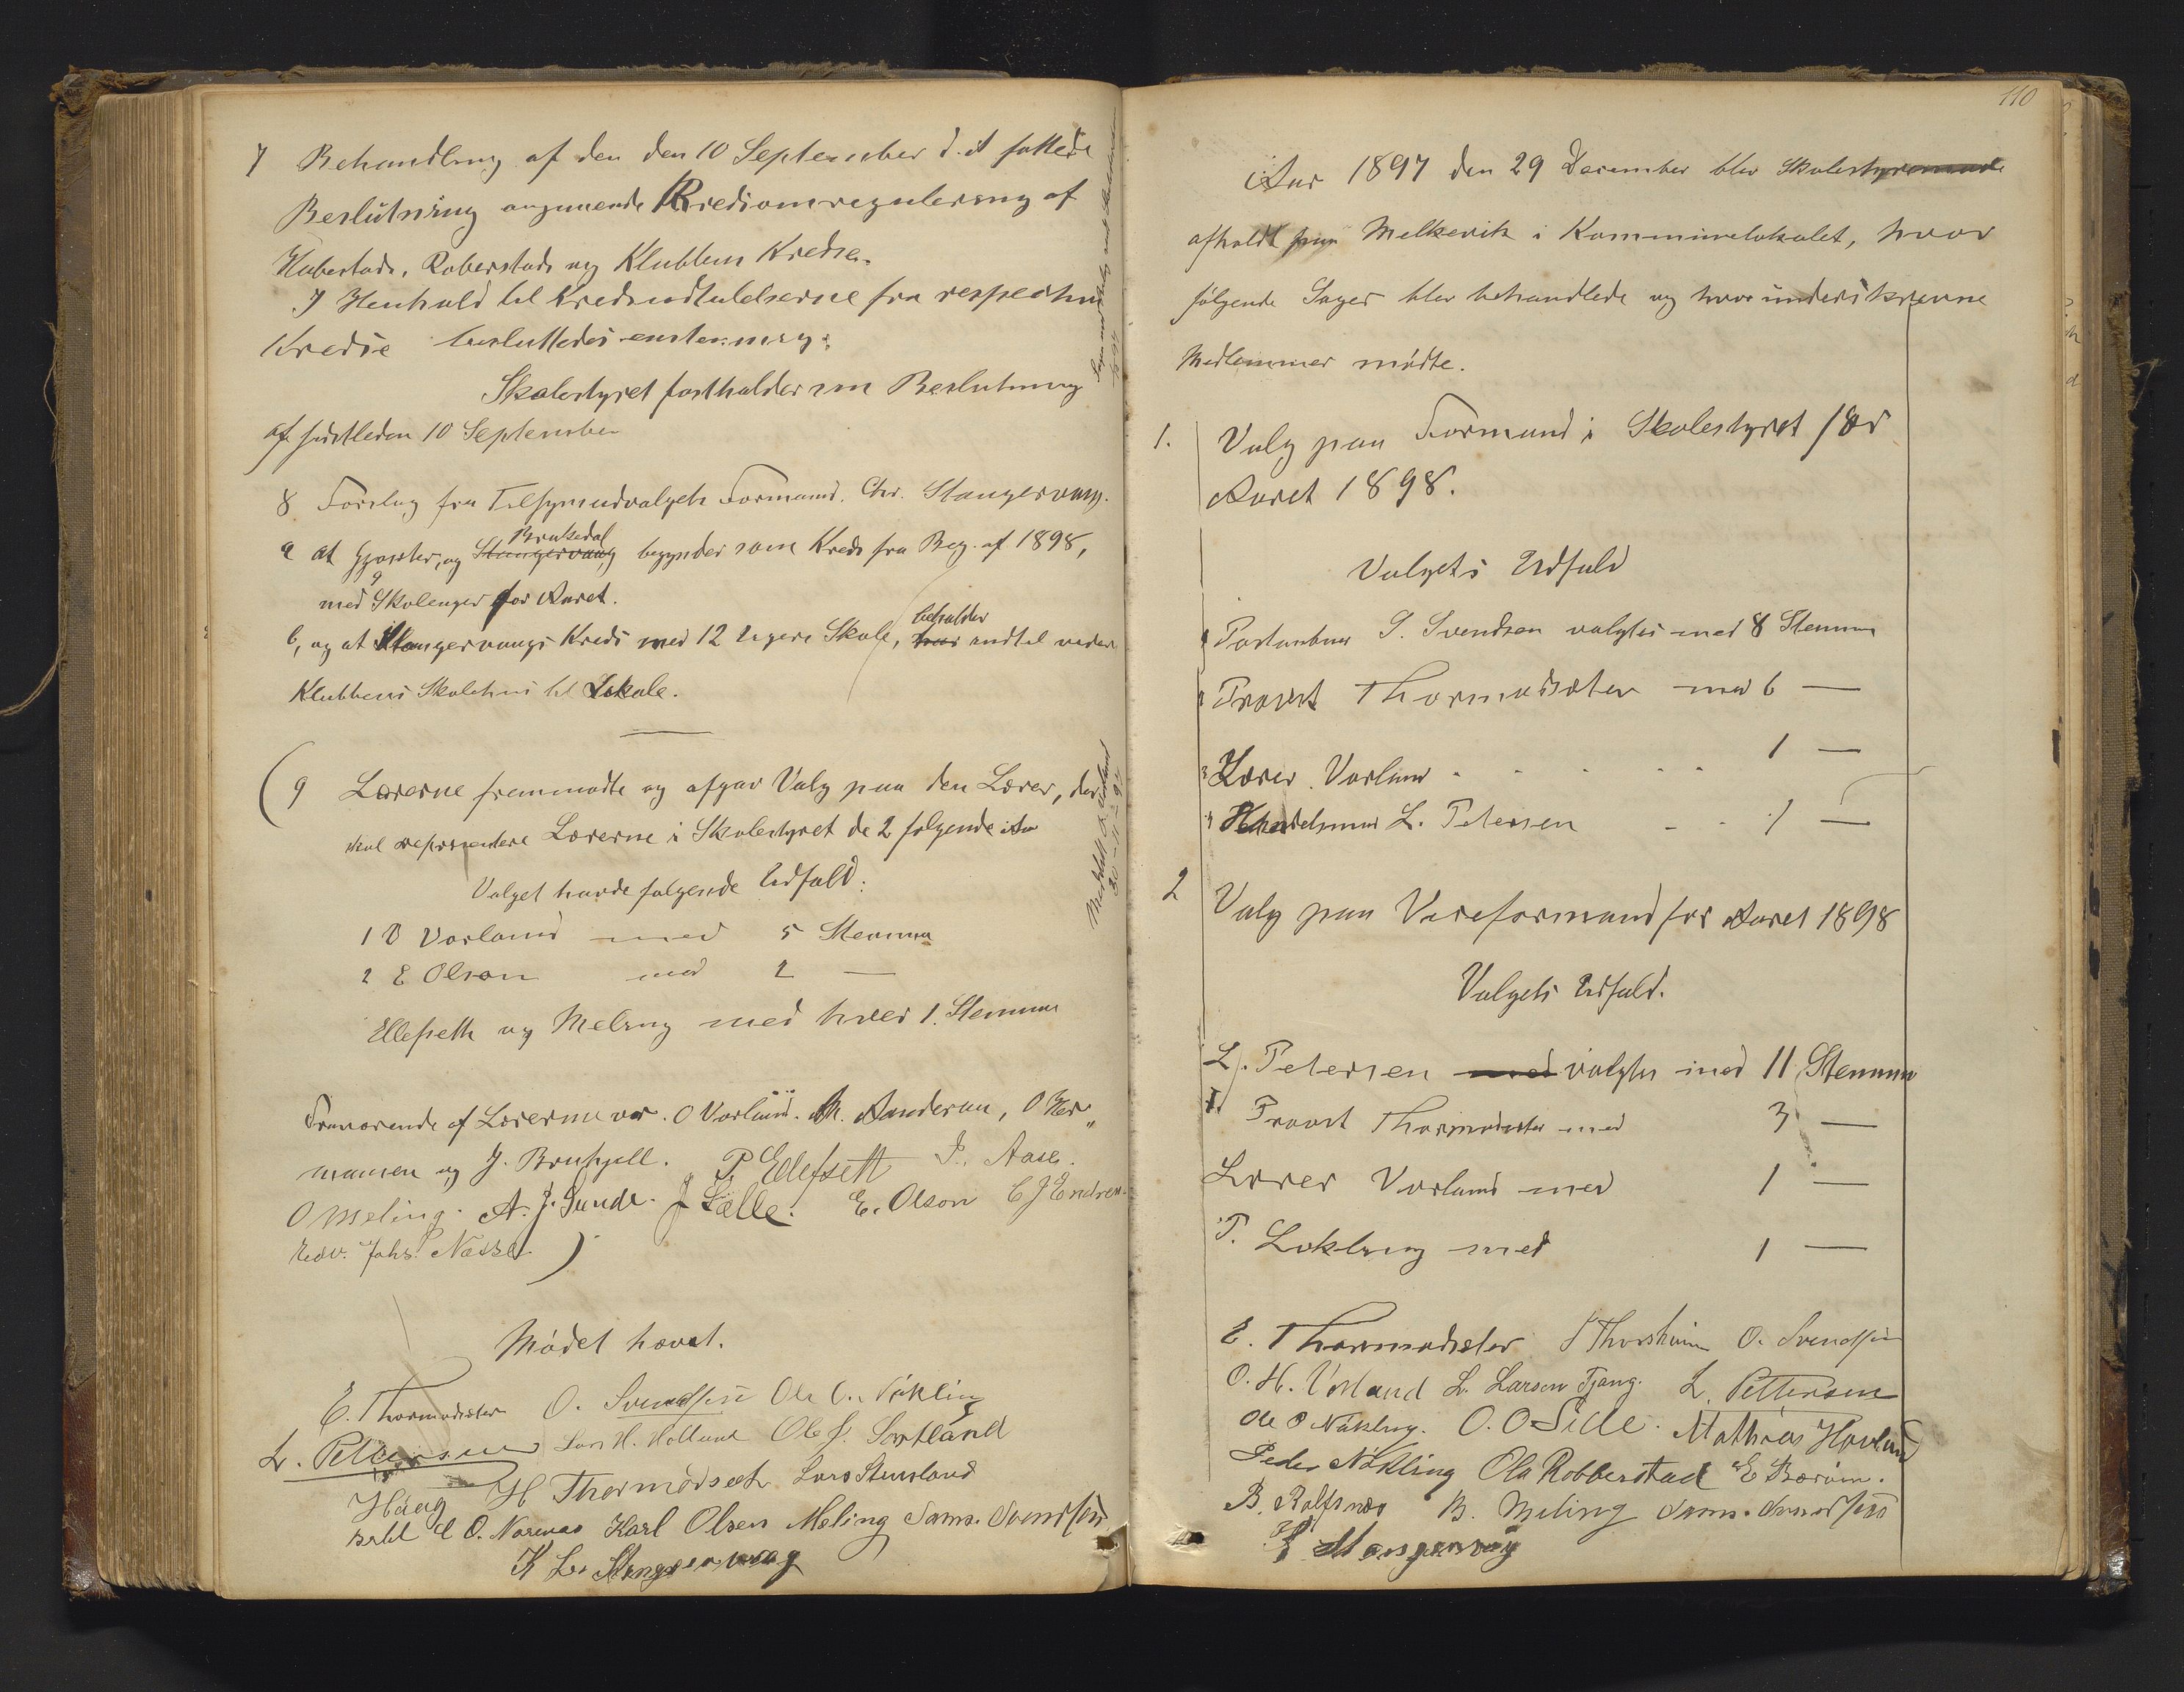 7 Behandling af den den 10 September d. A fattede
Beslutning angaaende Kredsomregulering af
Habestads, Roberstads og Klubbens Kredse.
I Henhold til Kredsudtalelserne fra respective
Kredse besluttedes enstemmig:
Skolestyret fastholder sin Beslutning
af sidstleden 10 September
8 Forslag fra Tilsynsudvalgets Formand. Chr. Stangervaag.
Bruksdal
a at og Stangervaag begynder som Kreds fra Beg. af 1898,
9
med Skoleuger for Aaret.
b, og at Stangervaags Kreds med 12 Ugers Skole,
beholder
har indtil videre
Klubbens Skolehus til Lokale.
(9 Lærerne fremmødte og afgav Valg paa den Lærer, der
skal repræsentere Lærerne i Skolestyret de 2 følgende Aar
Valget havde følgende Udfald:
1 O Vorland med 5 Stemmer
2 E Olson med 2 —
Ellefseth og Meling med hver 1. Stemme
Meddelt O. Vorland
30-11-97
Fraværende af Lærerne var. O Vorland. M. Anderson, O Her„
mansen og J. P. Ellefsett I. Aase.
O Meling. A. J. Sunde. J Sælle. E. Olson C J Endresen
Edv. Johs. Næsse )
Mødet hævet.
E. Thormodsæter O. Svendsen Ole O. Nökling
L. Pettersen Lars H. Ole J. Sortland
Haag H Thormodseth Lars Stensland
E O. Karl Olsen Meling Sams. Svendsen
K L. Stangervaag
110
Aar 1897 den 29 December blev Skolestyremøde
afholdt paa Melkevik i Kommunelokalet, hvor
følgende Sager blev behandlede og hvor underskrevne
Medlemmer mødte.
1. Valg paa Formand i Skolestyret for
Aaret 1898.
Valgets Udfald
1 O. Svendsen valgtes med 8 Stemmer
2 Provst Thormodsæter med 6 —
3 Lærer Vorland . . . . . 1 —
4 Handelsmand L. Petersen - . 1 —
2 Valg paa Viceformand for Aaret 1898
Valgets Udfald.
L. Petersen med valgtes med 11 Stemmer
Provst Thormodsæter med 3 —
Lærer Vorland med 1 —
P. Lökling med 1 —
E. Thormodsæter O. Svendsen
O. H. Vorland L. Larsen Tjong. L. Pettersen
Ole O Nökling. O. O Sille. Mathias Hovland
Peder Nökling Ola Robberstad E Bærøen.
B. Rolfsnæs B. Meling Sams. Svendsen
Stangervaag